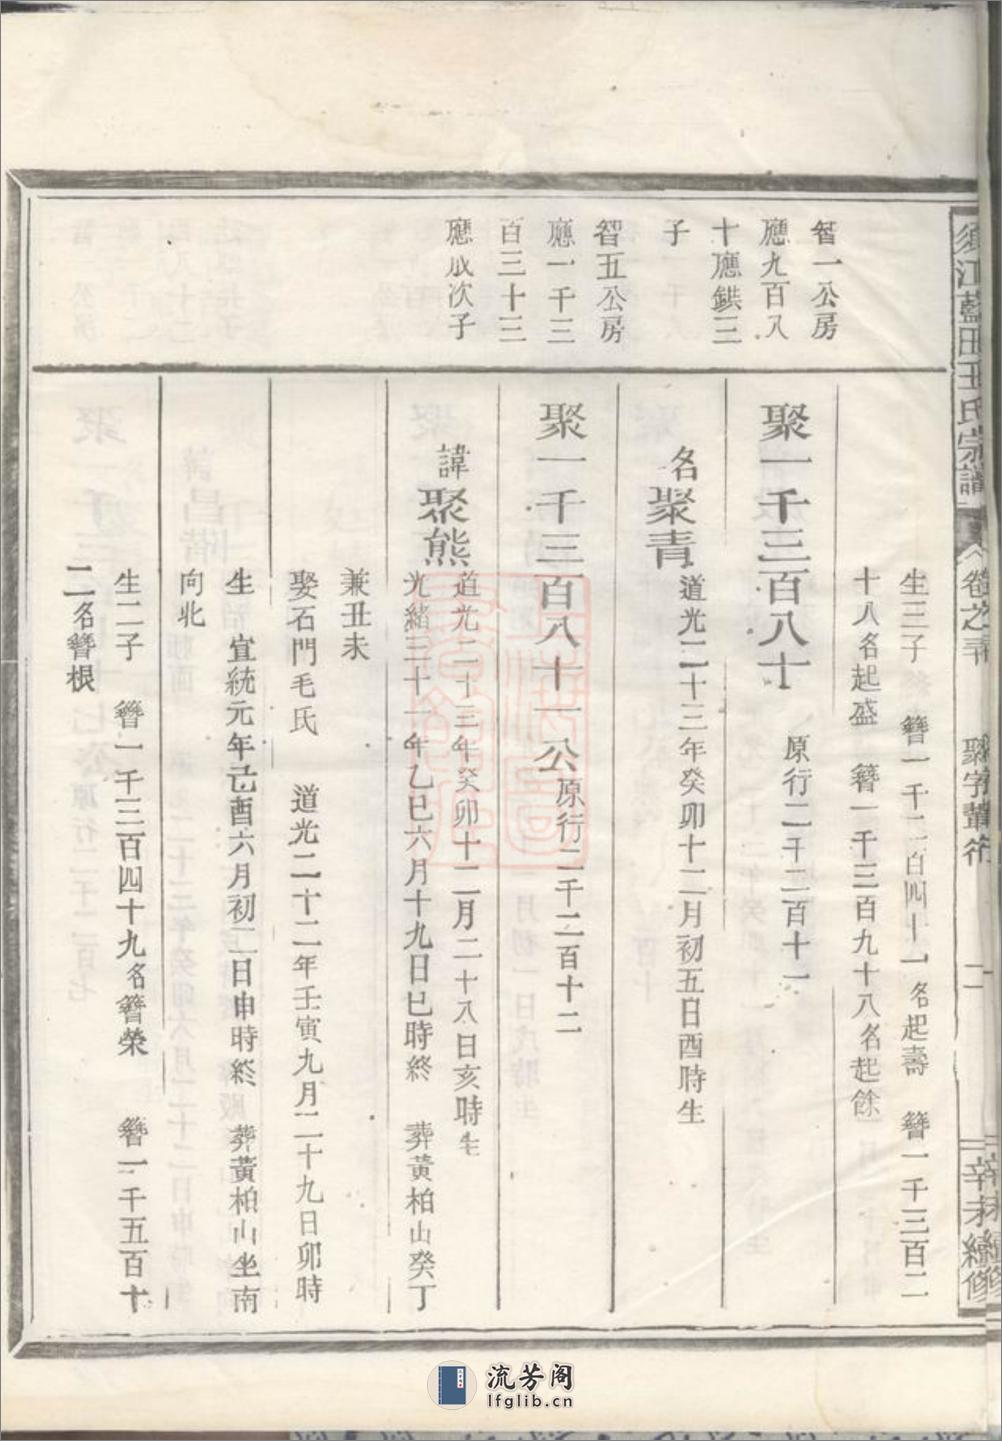 須江藍田王氏宗譜
卷之
聚字輩行
二
辛未續修
生三子 簪一千二百四十一名起壽 簪一千三百二
十八名起盛 簪一千三百九十八名起餘
智一公房
應九百八
十應鉷三
子
聚一千三百八十 原行二千二百十一
名聚青 道光二十三年癸卯十二月初五日酉時生
智五公房
應一千三
百三十三
應成次子
聚一千三百八十一公 原行二千二百十二
諱聚熊 道光二十三年癸卯十二月二十八日亥時生
光緒三十一年乙巳六月十九日巳時終 葬黃柏山癸丁
兼丑未
娶石門毛氏 道光二十二年壬寅九月二十九日卯時
生 宣統元年己酉六月初二日申時終 葬黃柏山坐南
向北
生二子 簪一千三百四十九名簪榮 簪一千五百十
二名簪根
流芳阁
lfglib.cn